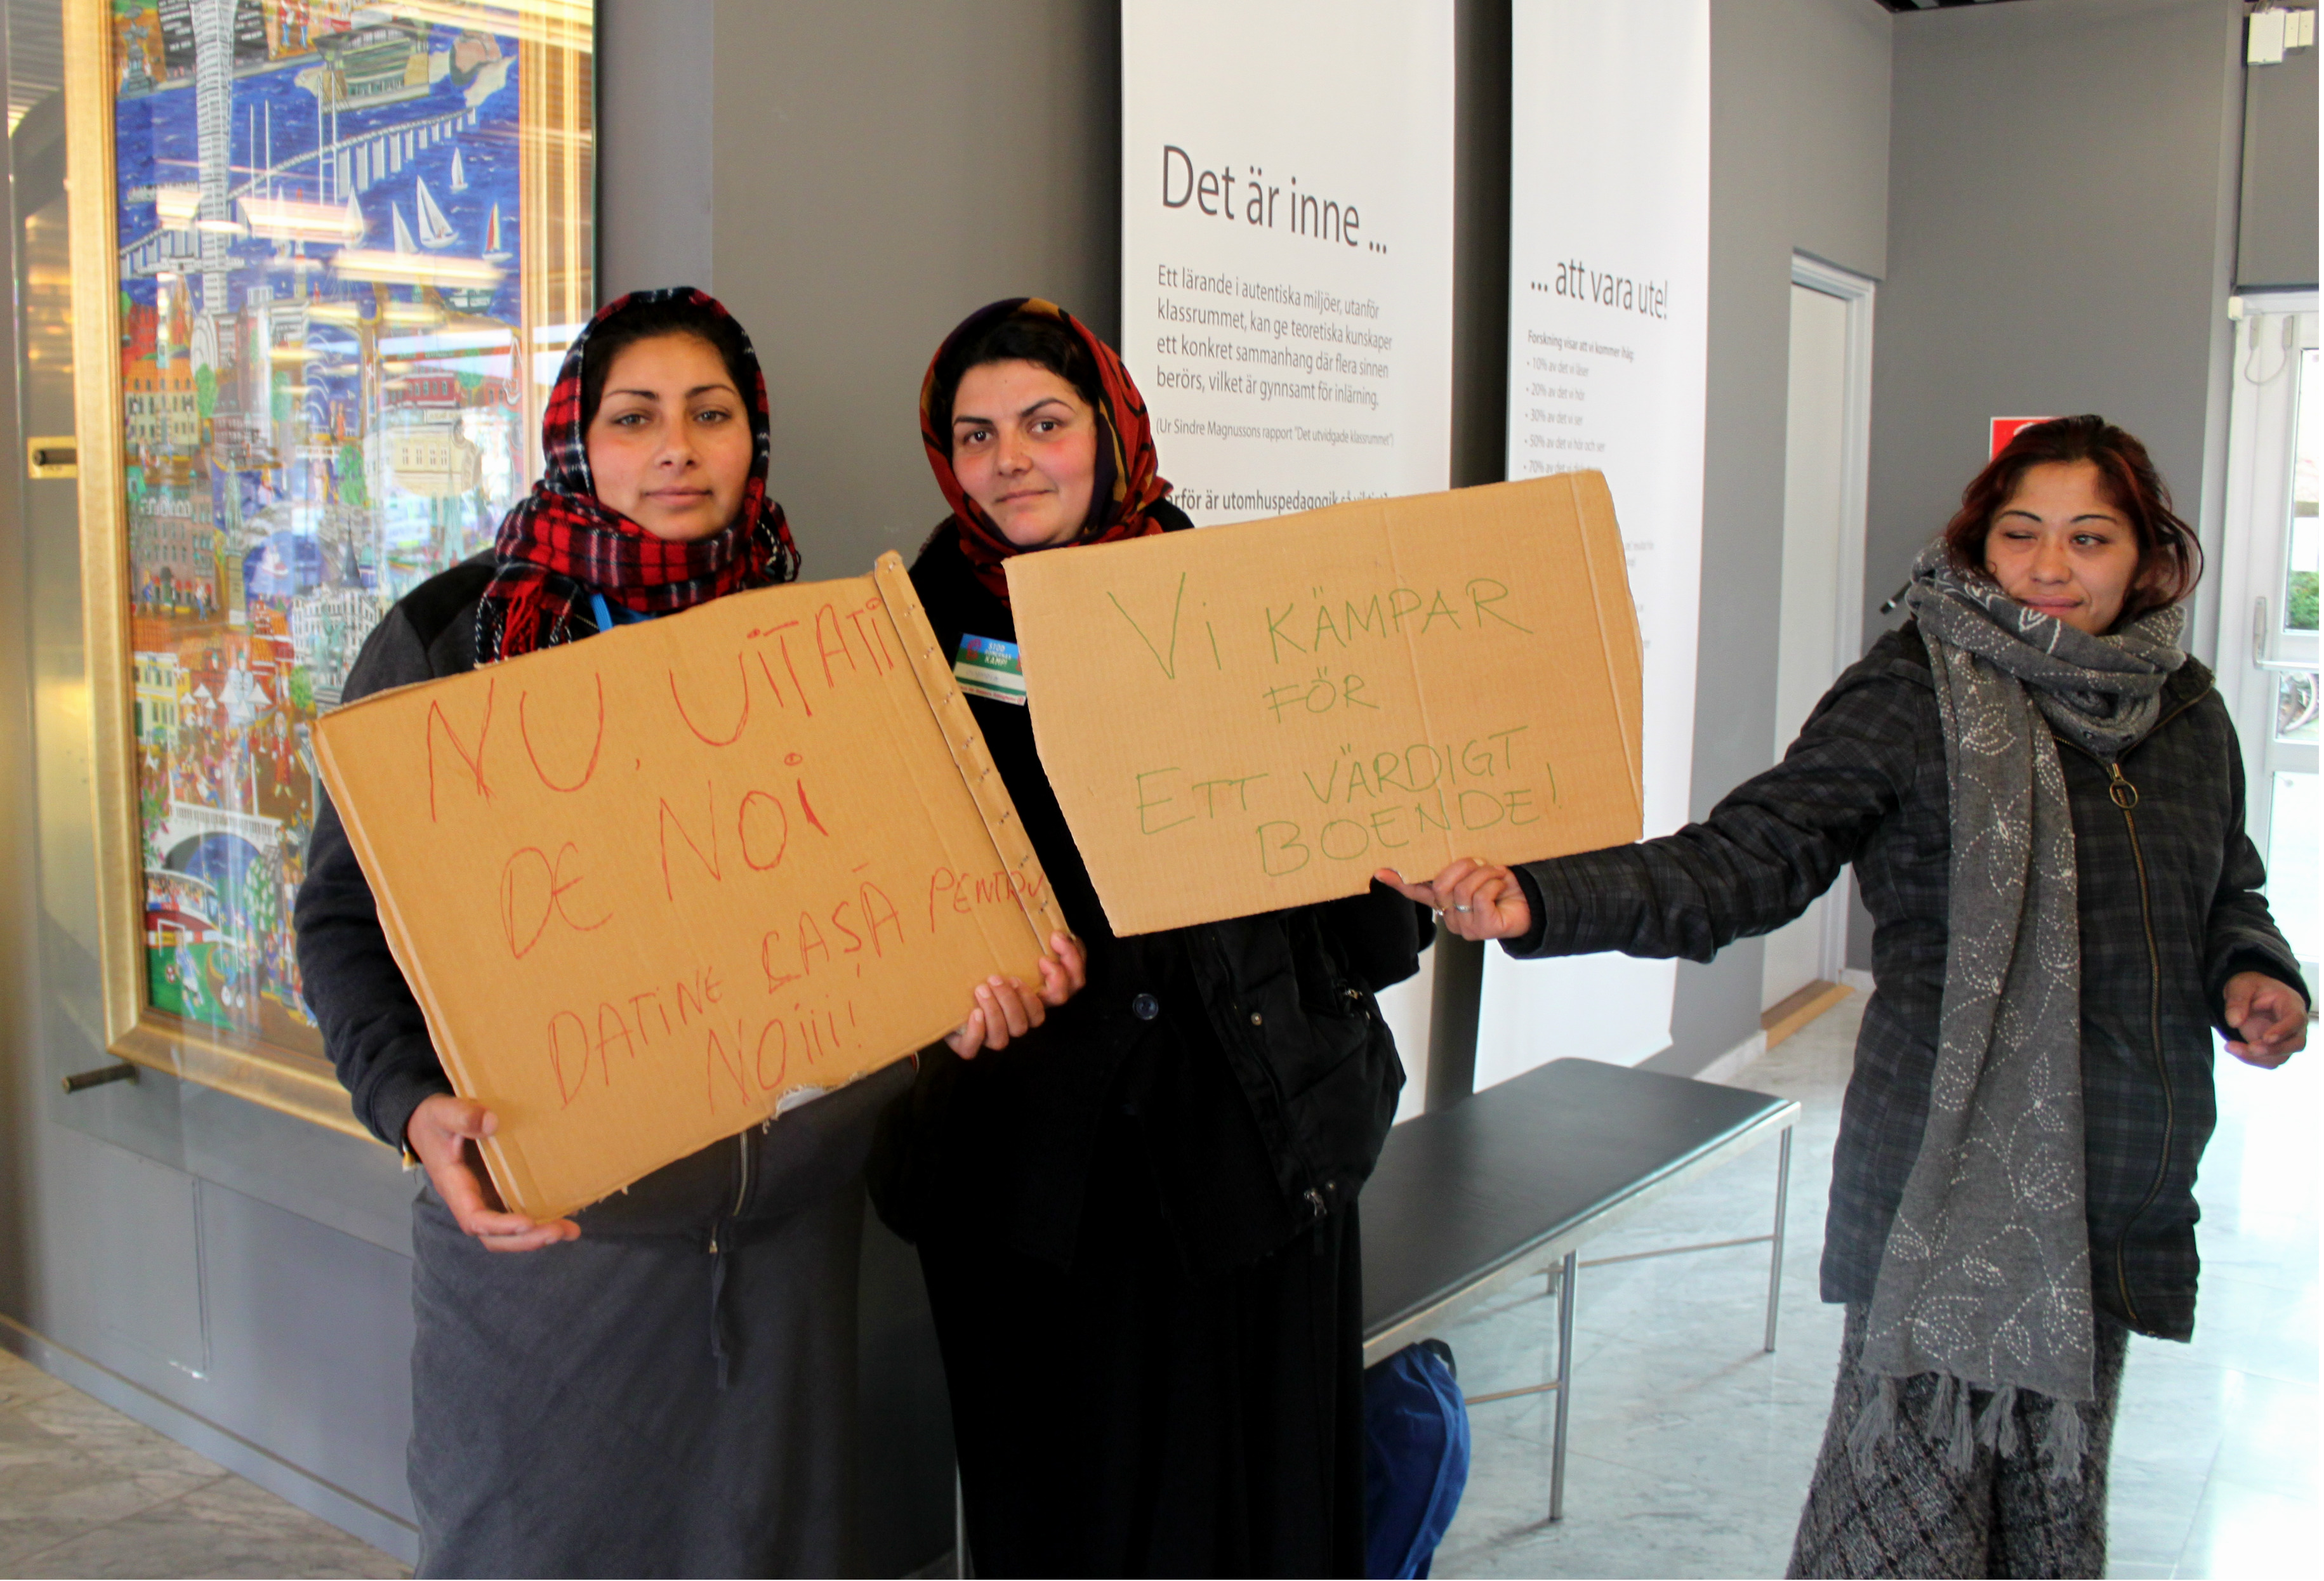 Det är inne ...
Ett lärande i autentiska miljöer, utanför
klassrummet, kan ge teoretiska kunskaper
ett konkret sammanhang där flera sinnen
berörs, vilket är gynnsamt för inlärning.
(Ur Sindre Magnussons rapport "Det utvidgade klassrummet")
är utomhuspedagogik så
... att vara ute!
Forskning visar att vi kommer ihåg:
• 10% av det vi läser
• 20% av det vi hör
• 30% av det vi ser
• 50% av det vi hör och ser
• 70% av det vi
NU, UITATI
DE NOI
DATINE CASĂ PENTRU
NOiii!
STOP
KAMP!
Vi KÄMPAR
FÖR
ETT VÄRDIGT
BOENDE!